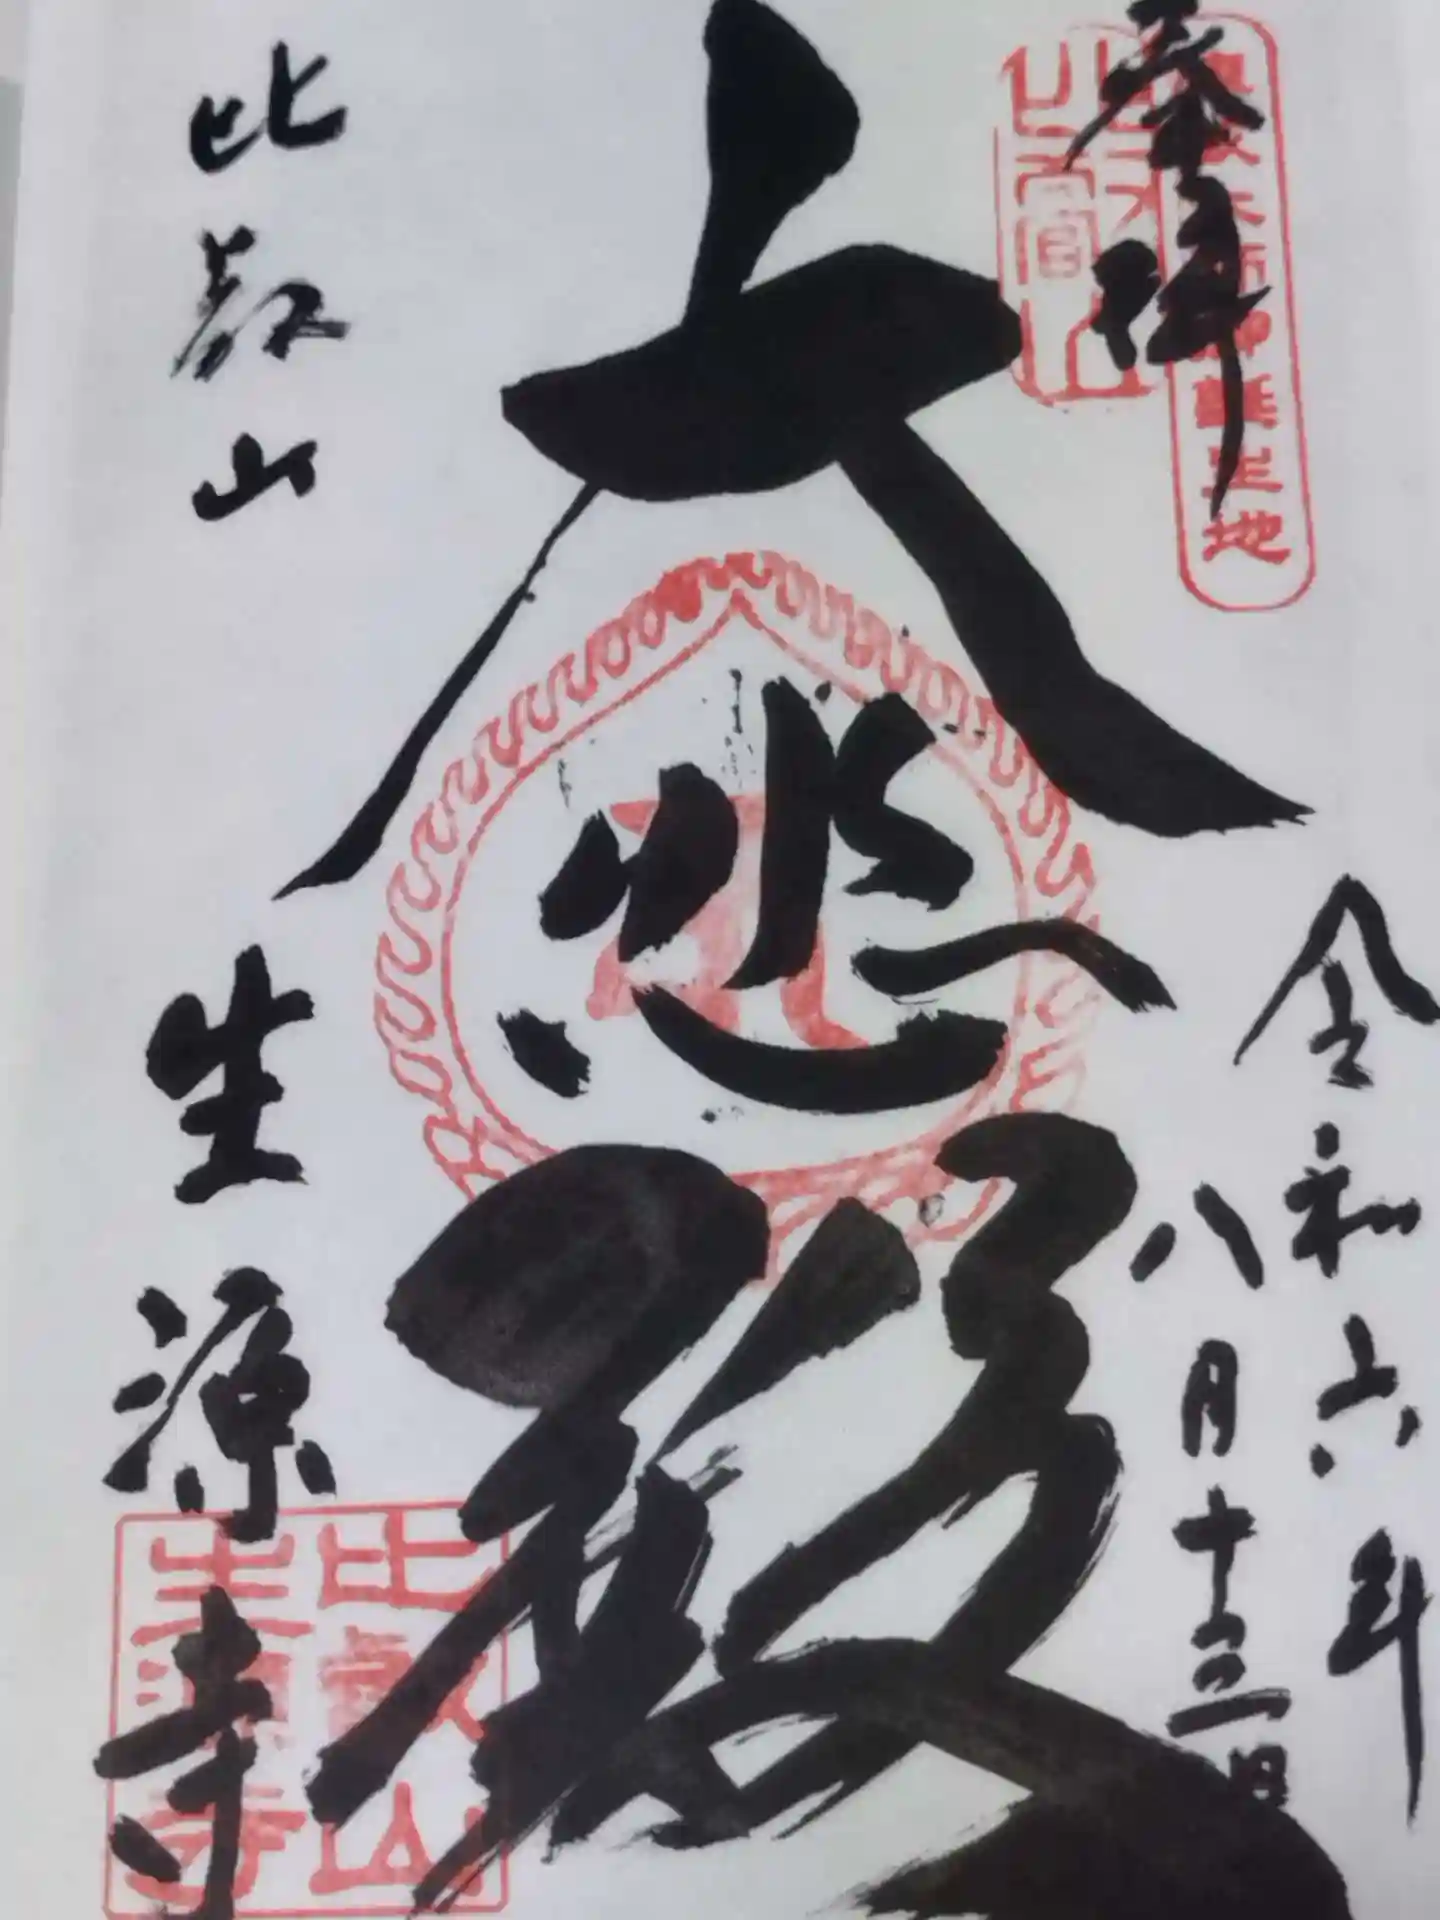 奉拝
伝教大師御誕生地
令和六年
八月十三日
大悲殿
比叡山
生源寺
比叡山
生源寺